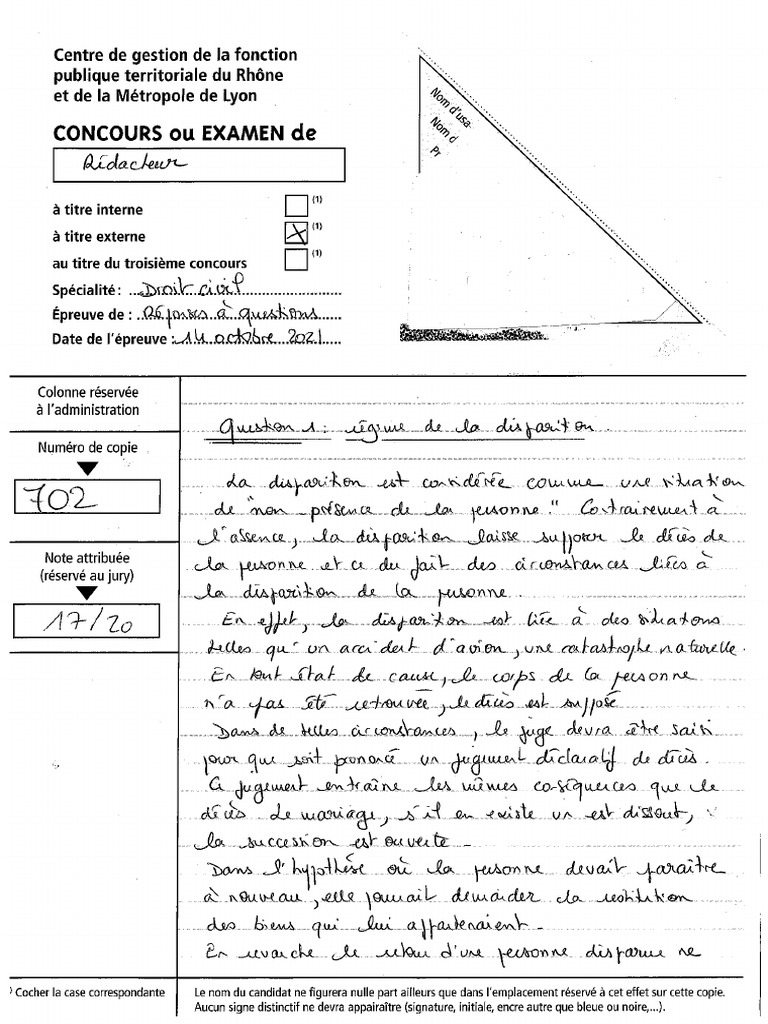 Centre de gestion de la fonction
publique territoriale du Rhône
et de la Métropole de Lyon
CONCOURS ou EXAMEN de
Rédacteur
à titre interne (1)
à titre externe X (1)
au titre du troisième concours (1)
Spécialité : Droit civil
Épreuve de : Réponses à questions
Date de l'épreuve : 14 octobre 2021
Nom d'usa
Nom d
Pr
Colonne réservée
à l'administration
Numéro de copie
702
Note attribuée
(réservé au jury)
17/20
Question 1 : régime de la disparition.
La disparition est considérée comme une situation
de "non-présence de la personne." Contrairement à
l'absence, la disparition laisse supposer le décès de
la personne et ce du fait des circonstances liées à
la disparition de la personne.
En effet, la disparition est liée à des situations
telles qu'un accident d'avion, une catastrophe naturelle.
En tout état de cause, le corps de la personne
n'a pas été retrouvée, le décès est supposé
Dans de telles circonstances, le juge devra être saisi
pour que soit prononcé un jugement déclaratif de décès.
Ce jugement entraîne les mêmes conséquences que le
décès. Le mariage, s'il en existe un est dissout,
la succession est ouverte.
Dans l'hypothèse où la personne devait paraître
à nouveau, elle pourrait demander la restitution
des biens qui lui appartenaient.
En revanche le retour d'une personne disparue ne
) Cocher la case correspondante
Le nom du candidat ne figurera nulle part ailleurs que dans l'emplacement réservé à cet effet sur cette copie.
Aucun signe distinctif ne devra appairaître (signature, initiale, encre autre que bleue ou noire,...).